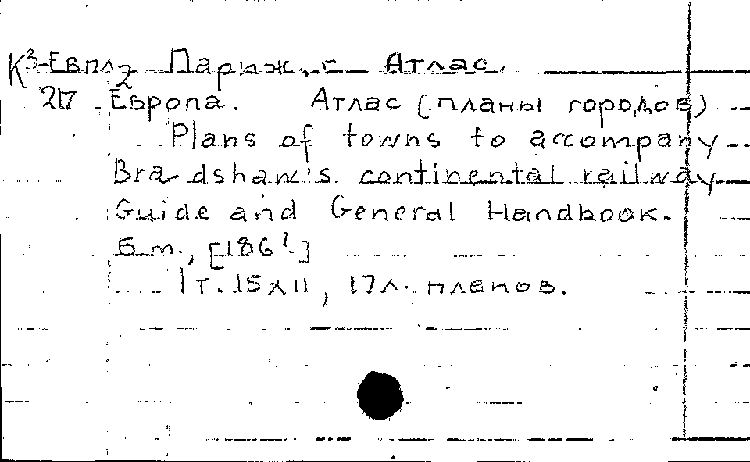 К³-Евпл2 Париж, г. Атлас.
217 Европа. Атлас (планы городов)
Plans of towns to accompany
Bradshaw's continental railway
Guide and General Handbook.
Б.m., [186?]
1 т. 15х11, 17л. планов.